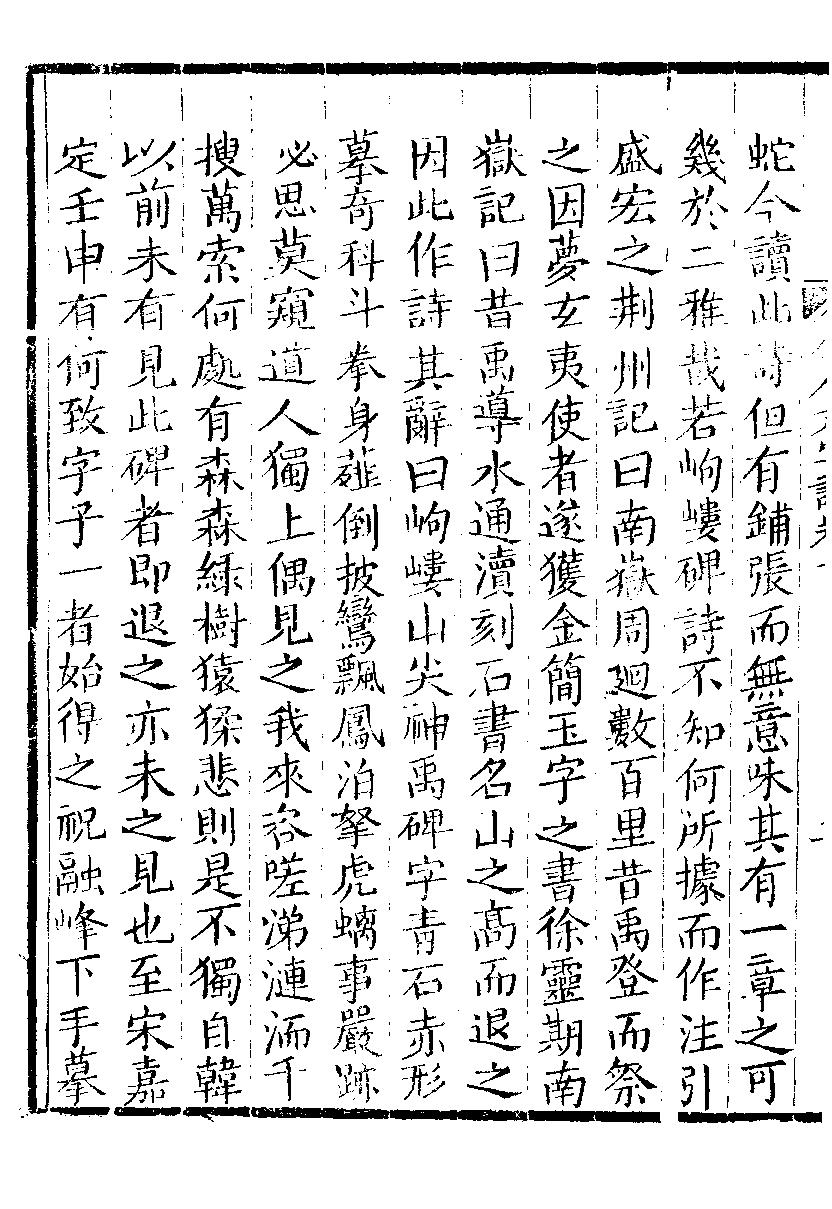 蛇今讀此詩但有鋪張而無意味其有一章之可
幾於二雅哉若岣嶁碑詩不知何所據而作注引
盛宏之荆州記曰南嶽周廻數百里昔禹登而祭
之因夢玄夷使者遂獲金簡玉字之書徐靈期南
嶽記曰昔禹導水通瀆刻石書名山之高而退之
因此作詩其辭曰岣嶁山尖神禹碑字青石赤形
摹奇科斗拳身薤倒披鸞飄鳳泊拏虎螭事嚴跡
必思莫窺道人獨上偶見之我來咨嗟涕漣洏千
搜萬索何處有森森緑樹猿猱悲則是不獨自韓
以前未有見此碑者即退之亦未之見也至宋嘉
定壬申有何致字子一者始得之祝融峰下手摹